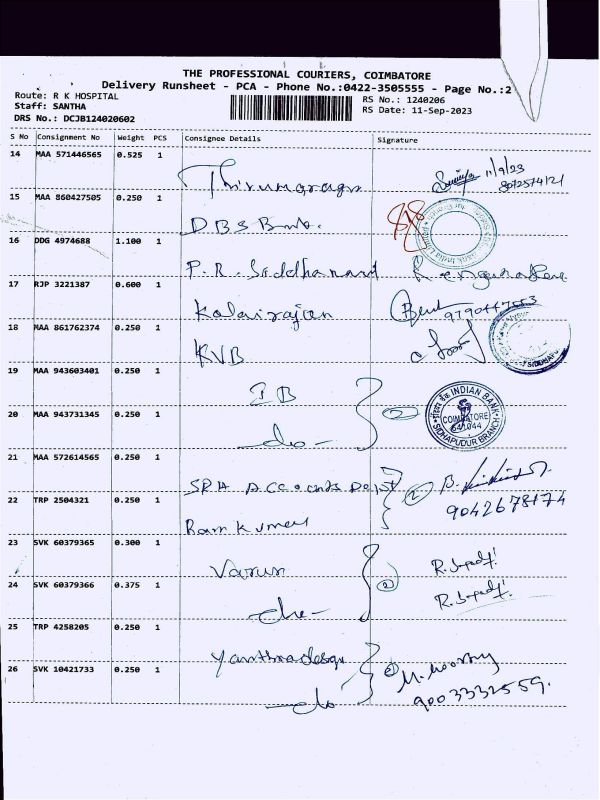 THE PROFESSIONAL COURIERS, COIMBATORE
Delivery Runsheet - PCA - Phone No.:0422-3505555 - Page No.:2
Route: R K HOSPITAL
Staff: SANTHA
DRS No.: DCJB124020602
RS No.: 1240206
RS Date: 11-Sep-2023
S No Consignment No Weight PCS Consignee Details Signature
14 MAA 571446565 0.525 1 11/9/23
15 MAA 860427505 0.250 1 DBS Bnk.
16 DDG 4974688 1.100 1 P.R. Siddhanand
17 RJP 3221387 0.600 1 Kalairajan
18 MAA 861762374 0.250 1 KVB
19 MAA 943603401 0.250 1 IB
20 MAA 943731345 0.250 1 -do- 2 INDIAN BANK COIMBATORE 641044 SIDHAPUDUR BRANCH
21 MAA 572614565 0.250 1 SRH Accounts Dept
22 TRP 2504321 0.250 1 Ram Kumar 2 9042678174
23 SVK 60379365 0.300 1 Varun
24 SVK 60379366 0.375 1 -do- 2
25 TRP 4258205 0.250 1 Yanthradesign
26 SVK 10421733 0.250 1 -do- 2 M. Moorthy 9003332559.